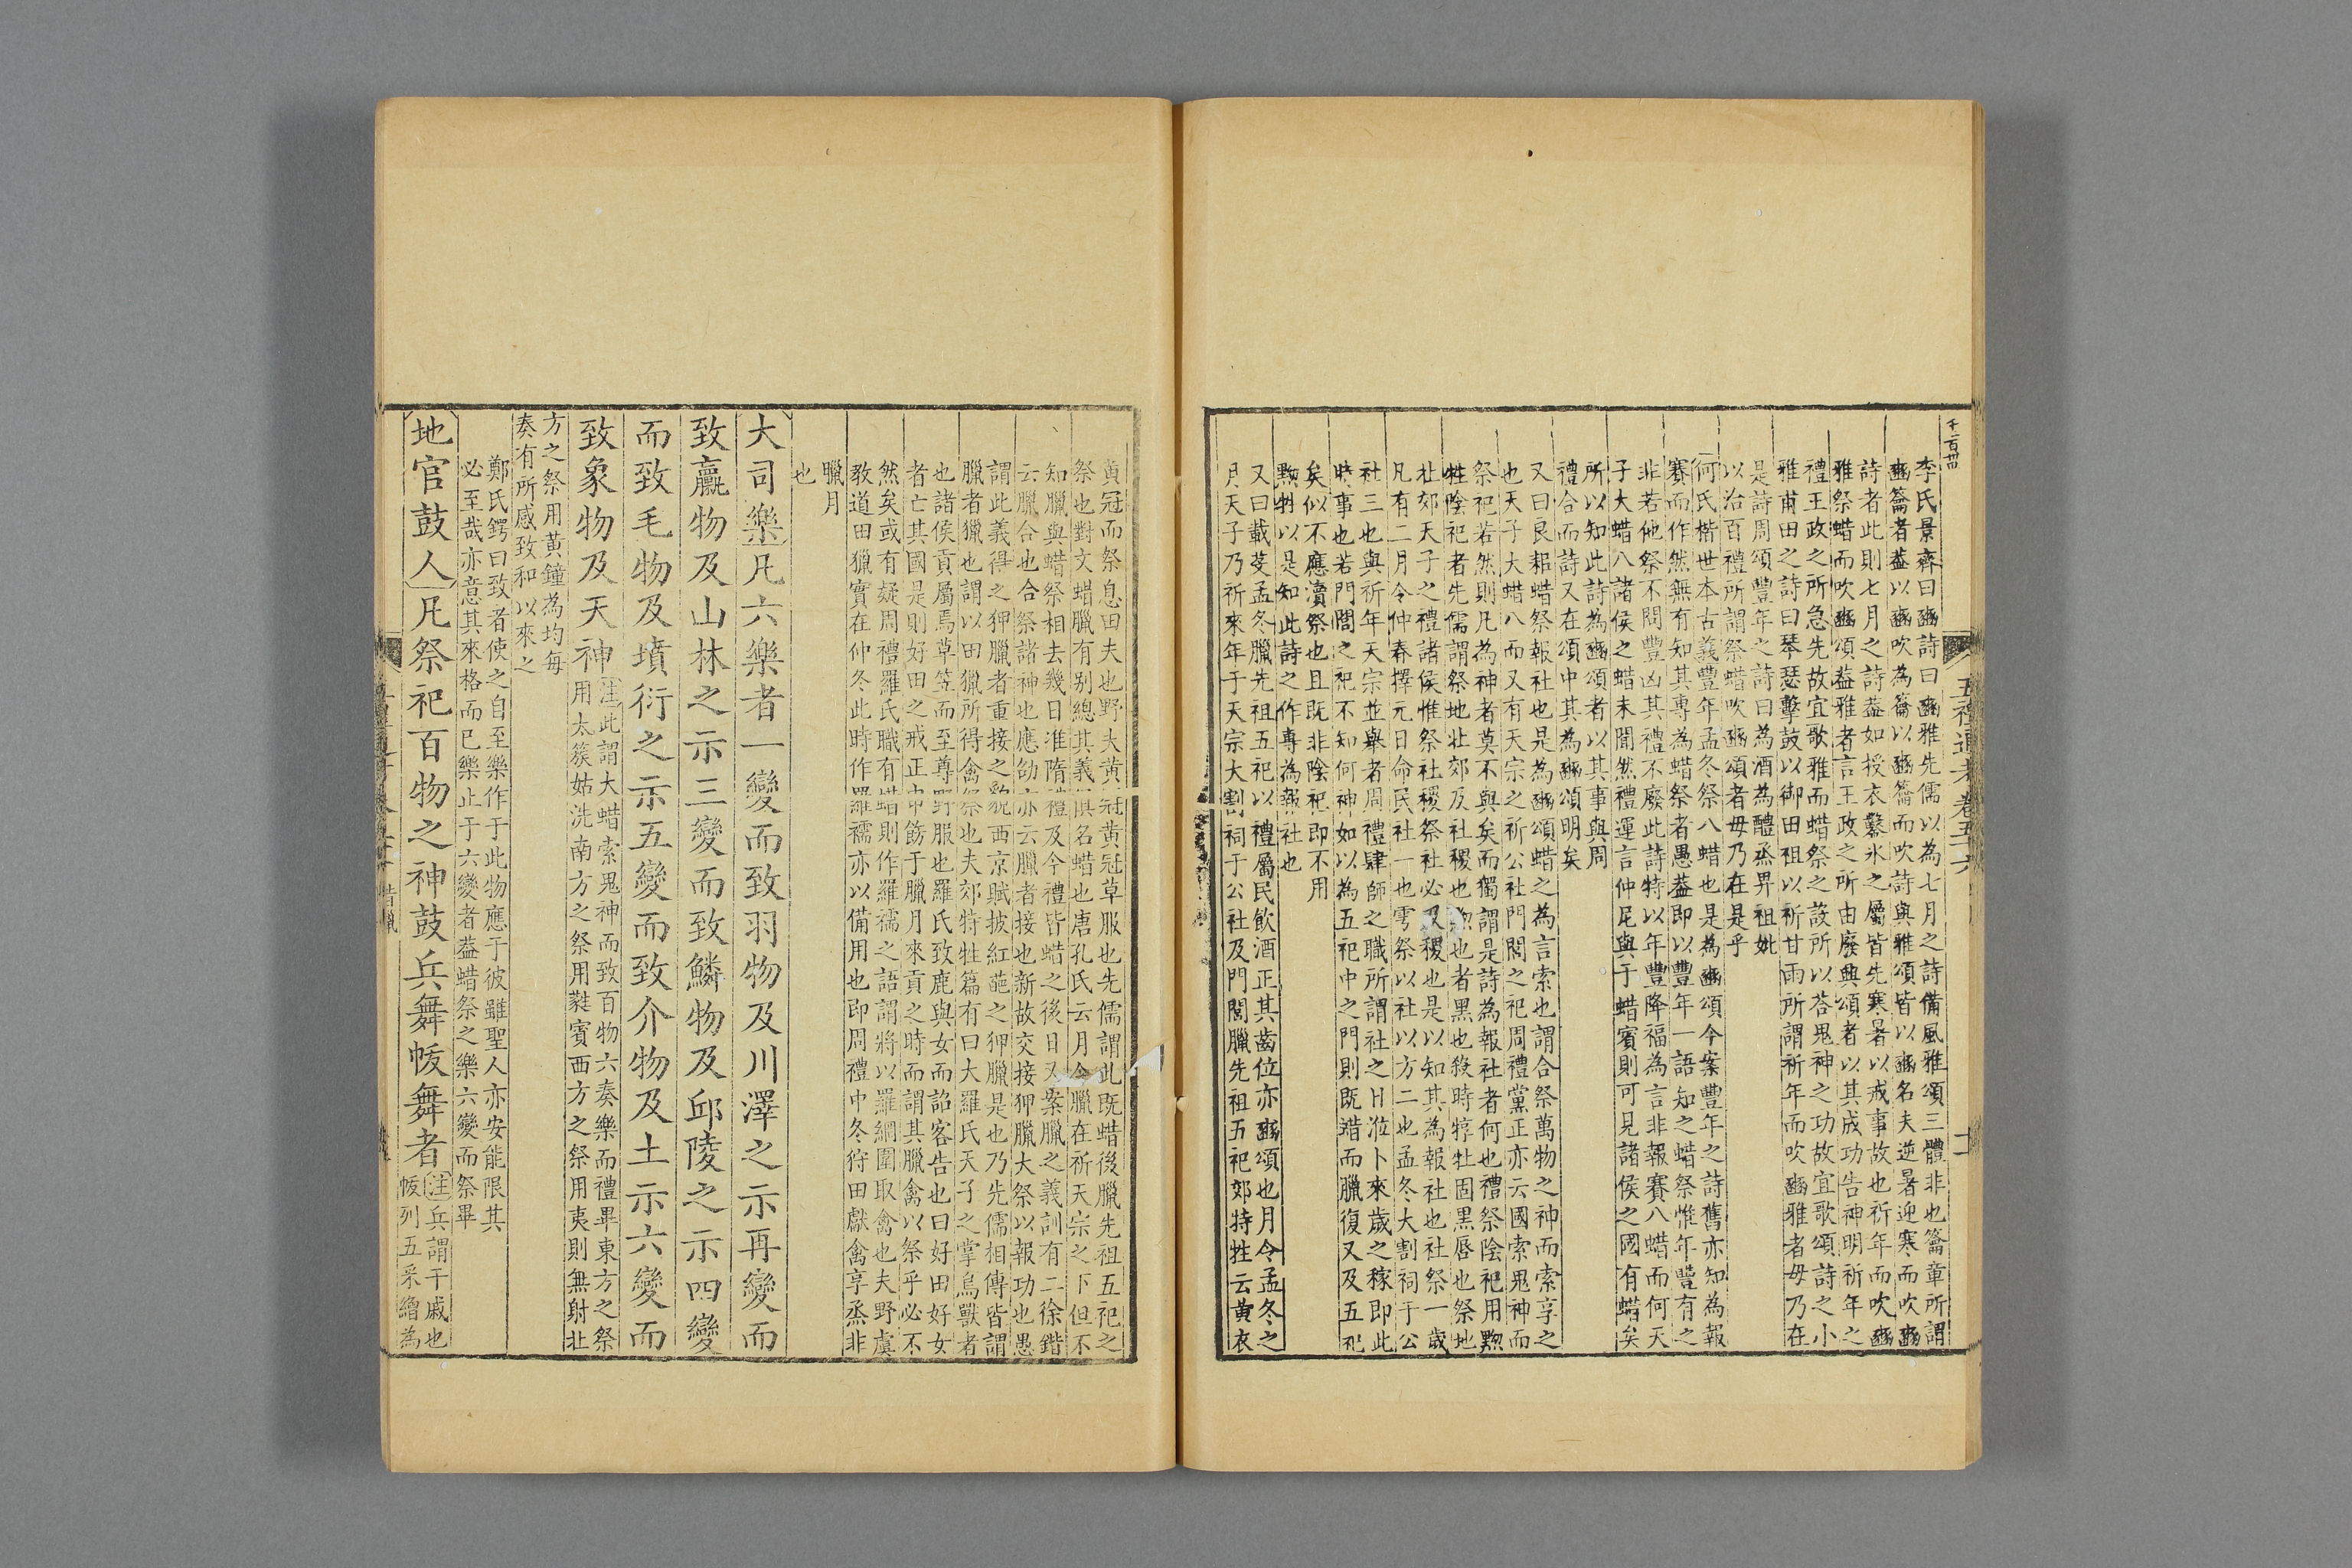 五禮通考卷五十六
李氏景齊曰豳詩曰豳雅先儒以為七月之詩備風雅頌三體非也籥章所謂
豳籥者葢以豳吹為籥以豳籥而吹詩與雅頌皆以豳名夫逆暑迎寒而吹豳
詩者此則七月之詩葢如授衣鑿氷之屬皆先寒暑以戒事故也祈年而吹豳
雅祭蜡而吹豳頌葢雅者言王政之所由廢興頌者以其成功告神明祈年之
禮王政之所急先故宜歌雅而蜡祭之設所以荅鬼神之功故宜歌頌詩之小
雅甫田之詩曰琴瑟擊鼓以御田祖以祈甘雨所謂祈年而吹豳雅者毋乃在
是詩周頌豐年之詩曰為酒為醴烝畀祖妣
以洽百禮所謂祭蜡吹豳頌者毋乃在是乎
何氏楷世本古義豐年孟冬祭八蜡也是為豳頌今案豐年之詩舊亦知為報
賽而作然無有知其專為蜡祭者愚葢即以豐年一語知之蜡祭惟年豐有之
非若他祭不問豐凶其禮不廢此詩特以年豐降福為言非報賽八蜡而何天
子大蜡八諸侯之蜡未聞然禮運言仲尼與于蜡賓則可見諸侯之國有蜡矣
所以知此詩為豳頌者以其事與周
禮合而詩又在頌中其為豳頌明矣
又曰良耜蜡祭報社也是為豳頌蜡之為言索也謂合祭萬物之神而索享之
也天子大蜡八而又有天宗之祈公社門閭之祀周禮黨正亦云國索鬼神而
祭祀若然則凡為神者莫不與矣而獨謂是詩為報社者何也禮祭陰祀用黝
牲陰祀者先儒謂祭地北郊及社稷也黝也者黑也殺時犉牡固黑唇也祭地
北郊天子之禮諸侯惟祭社稷祭社必及稷也是以知其為報社也社祭一歲
凡有二月令仲春擇元日命民社一也雩祭以社以方二也孟冬大割祠于公
社三也與祈年天宗並舉者周禮肆師之職所謂社之日涖卜來歲之稼即此
時事也若門閭之祀不知何神如以為五祀中之門則既蜡而臘復又及五祀
矣似不應瀆祭也且既非陰祀即不用
黝牲以是知此詩之作專為報社也
又曰載芟孟冬臘先祖五祀以禮屬民飲酒正其齒位亦豳頌也月令孟冬之
月天子乃祈來年于天宗大割祠于公社及門閭臘先祖五祀郊特牲云黃衣
黃冠而祭息田夫也野夫黃冠黃冠草服也先儒謂此既蜡後臘先祖五祀之
祭也對文蜡臘有別總其義俱名蜡也唐孔氏云月令臘在祈天宗之下但不
知臘與蜡祭相去幾日准隋禮及今禮皆蜡之後日又案臘之義訓有二徐鍇
云臘合也合祭諸神也應劭亦云臘者接也新故交接狎臘大祭以報功也愚
謂此義得之狎臘者重接之貌西京賦披紅葩之狎臘是也乃先儒相傳皆謂
臘者獵也謂以田獵所得禽祭也夫郊特牲篇有曰大羅氏天子之掌鳥獸者
也諸侯貢屬焉草笠而至尊野服也羅氏致鹿與女而詔客告也曰好田好女
者亡其國是則好田之戒正申飭于臘月來貢之時而謂其臘禽以祭乎必不
然矣或有疑周禮羅氏職有蜡則作羅襦之語謂將以羅網圍取禽也夫野虞
教道田獵實在仲冬此時作羅襦亦以備用也即周禮中冬狩田獻禽享烝非
臘月
也
大司樂凡六樂者一變而致羽物及川澤之示再變而
致臝物及山林之示三變而致鱗物及邱陵之示四變
而致毛物及墳衍之示五變而致介物及土示六變而
致象物及天神注此謂大蜡索鬼神而致百物六奏樂而禮畢東方之祭
用太簇姑洗南方之祭用蕤賓西方之祭用夷則無射北
方之祭用黃鐘為均每
奏有所感致和以來之
鄭氏鍔曰致者使之自至樂作于此物應于彼雖聖人亦安能限其
必至哉亦意其來格而已樂止于六變者葢蜡祭之樂六變而祭畢
地官鼓人凡祭祀百物之神鼓兵舞帗舞者注兵謂干戚也
帗列五采繒為